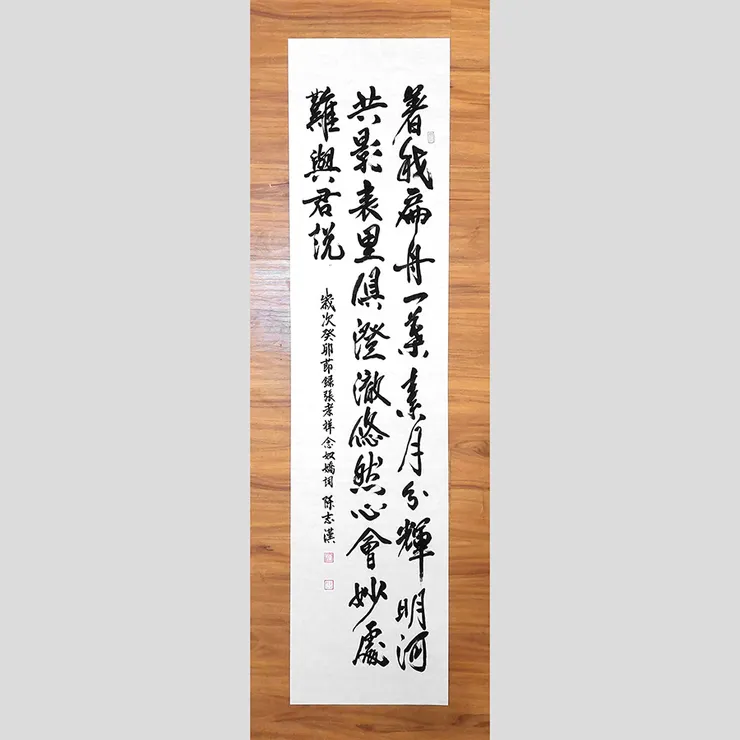 著我扁舟一葉素月分輝明河
共影表里俱澄澈悠然心會妙處
難與君說
歲次癸卯節錄張孝祥念奴嬌詞 陳志漢